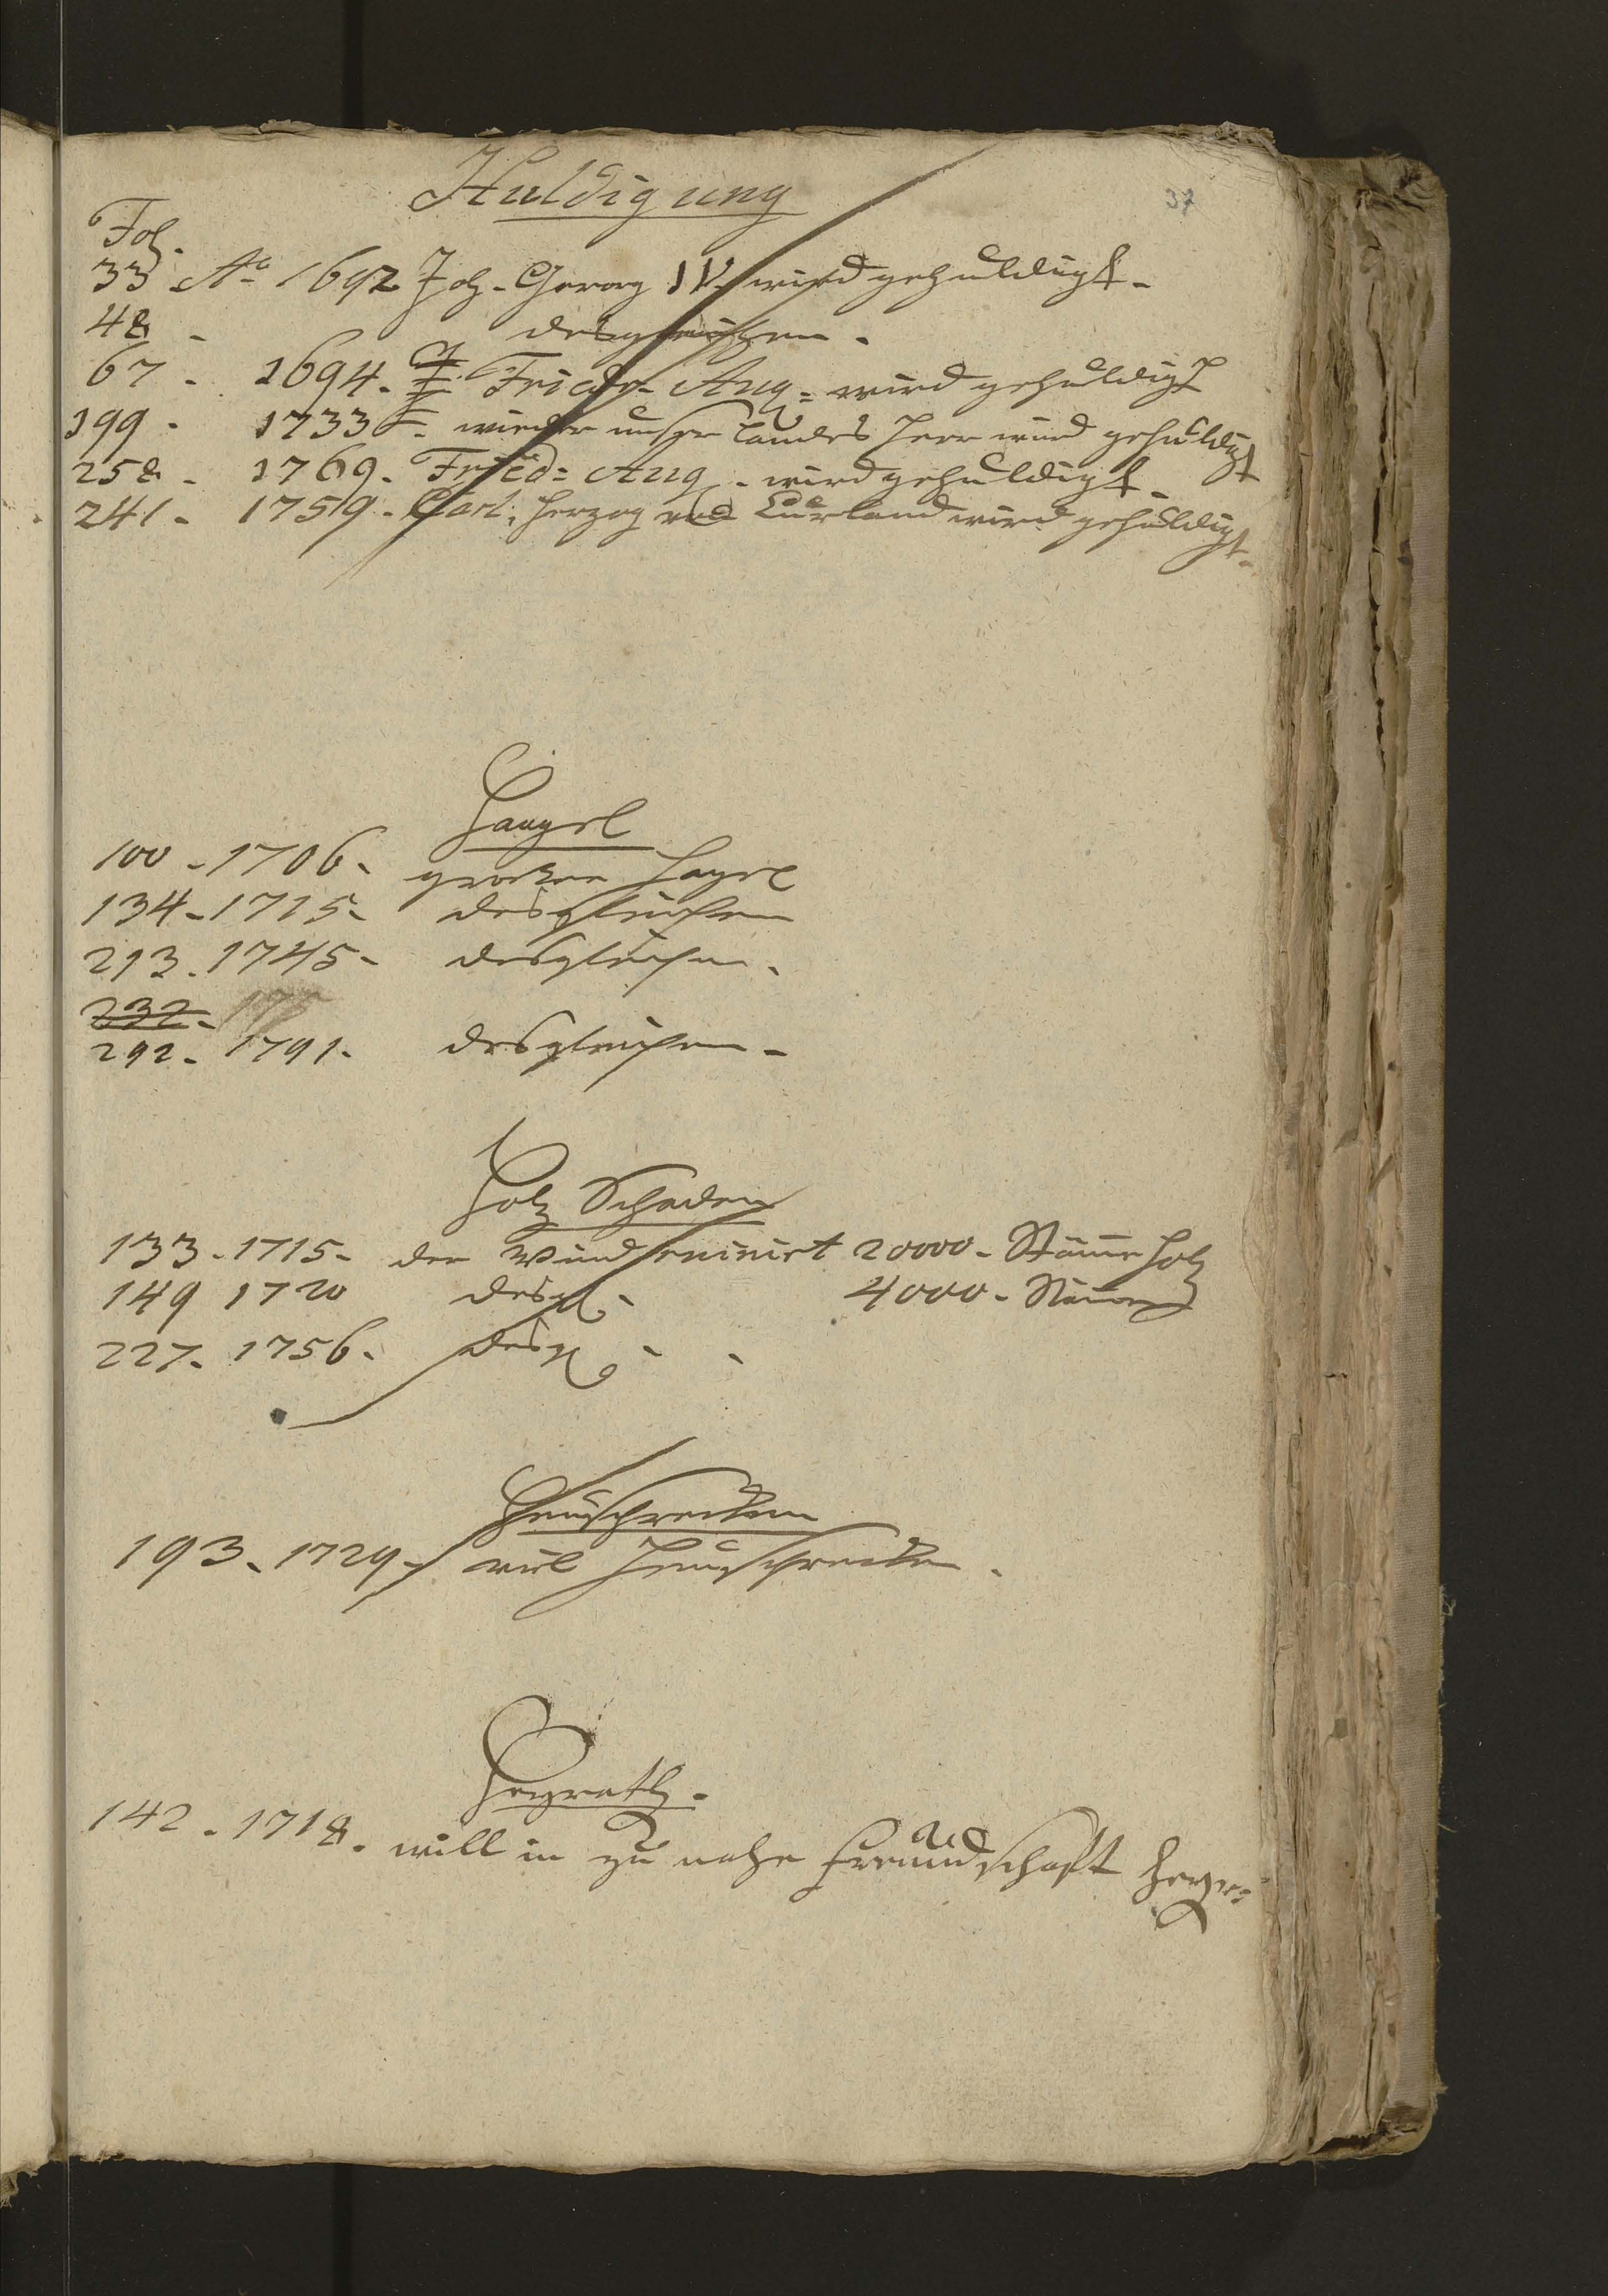 37
Huldigung
Fol.
33 Aō 1692 Joh. Georg IV. wird gehuldigt.
48 - desgleichen.
67 - 1694. Friedr. Aug. wird gehuldigt
199 - 1733. wieder unser Landes Herr wird gehuldigt
258 - 1769. Fried: Aug. wird gehuldigt.
241 - 1759. Carl, Herzog von Curland wird gehuldigt.
Haagel
100 - 1706. großer Hagel
134 - 1715. desgleichen
213. 1745 - desgleichen.
232. 17
292 - 1791. desgleichen.
Holz Schaden
133 - 1715 - der Wind ruinirt 20000 - Stäme Holz
149 1720 desgl. 4000 - Stäme
227. 1756. desgl. - -
Heuschrecken
193 - 1729 - viel Heuschrecken.
Heyrath.
142 - 1718. will in zu nahe Freundschaft